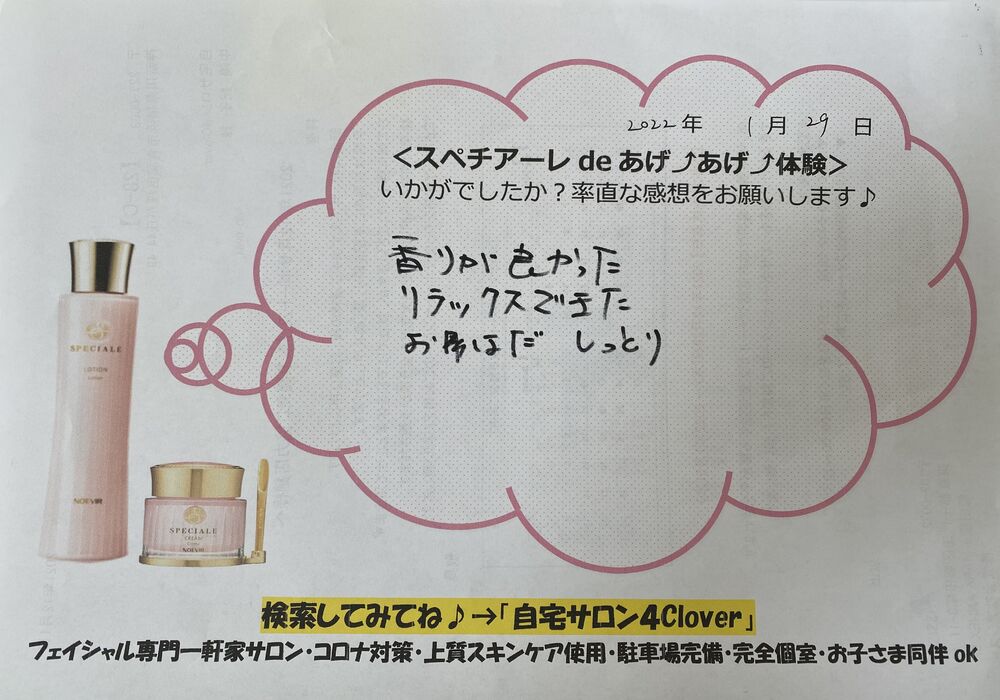 2022年 1月29日
<スペチアーレ de あげ⤴あげ⤴体験>
いかがでしたか？率直な感想をお願いします♪
香りが良かった
リラックスできた
お肌はだ しっとり
SPECIALE
LOTION
Lotion
NOEVIR
SPECIALE
CREAM
NOEVIR
検索してみてね♪→「自宅サロン4Clover」
フェイシャル専門一軒家サロン・コロナ対策・上質スキンケア使用・駐車場完備・完全個室・お子さま同伴ok